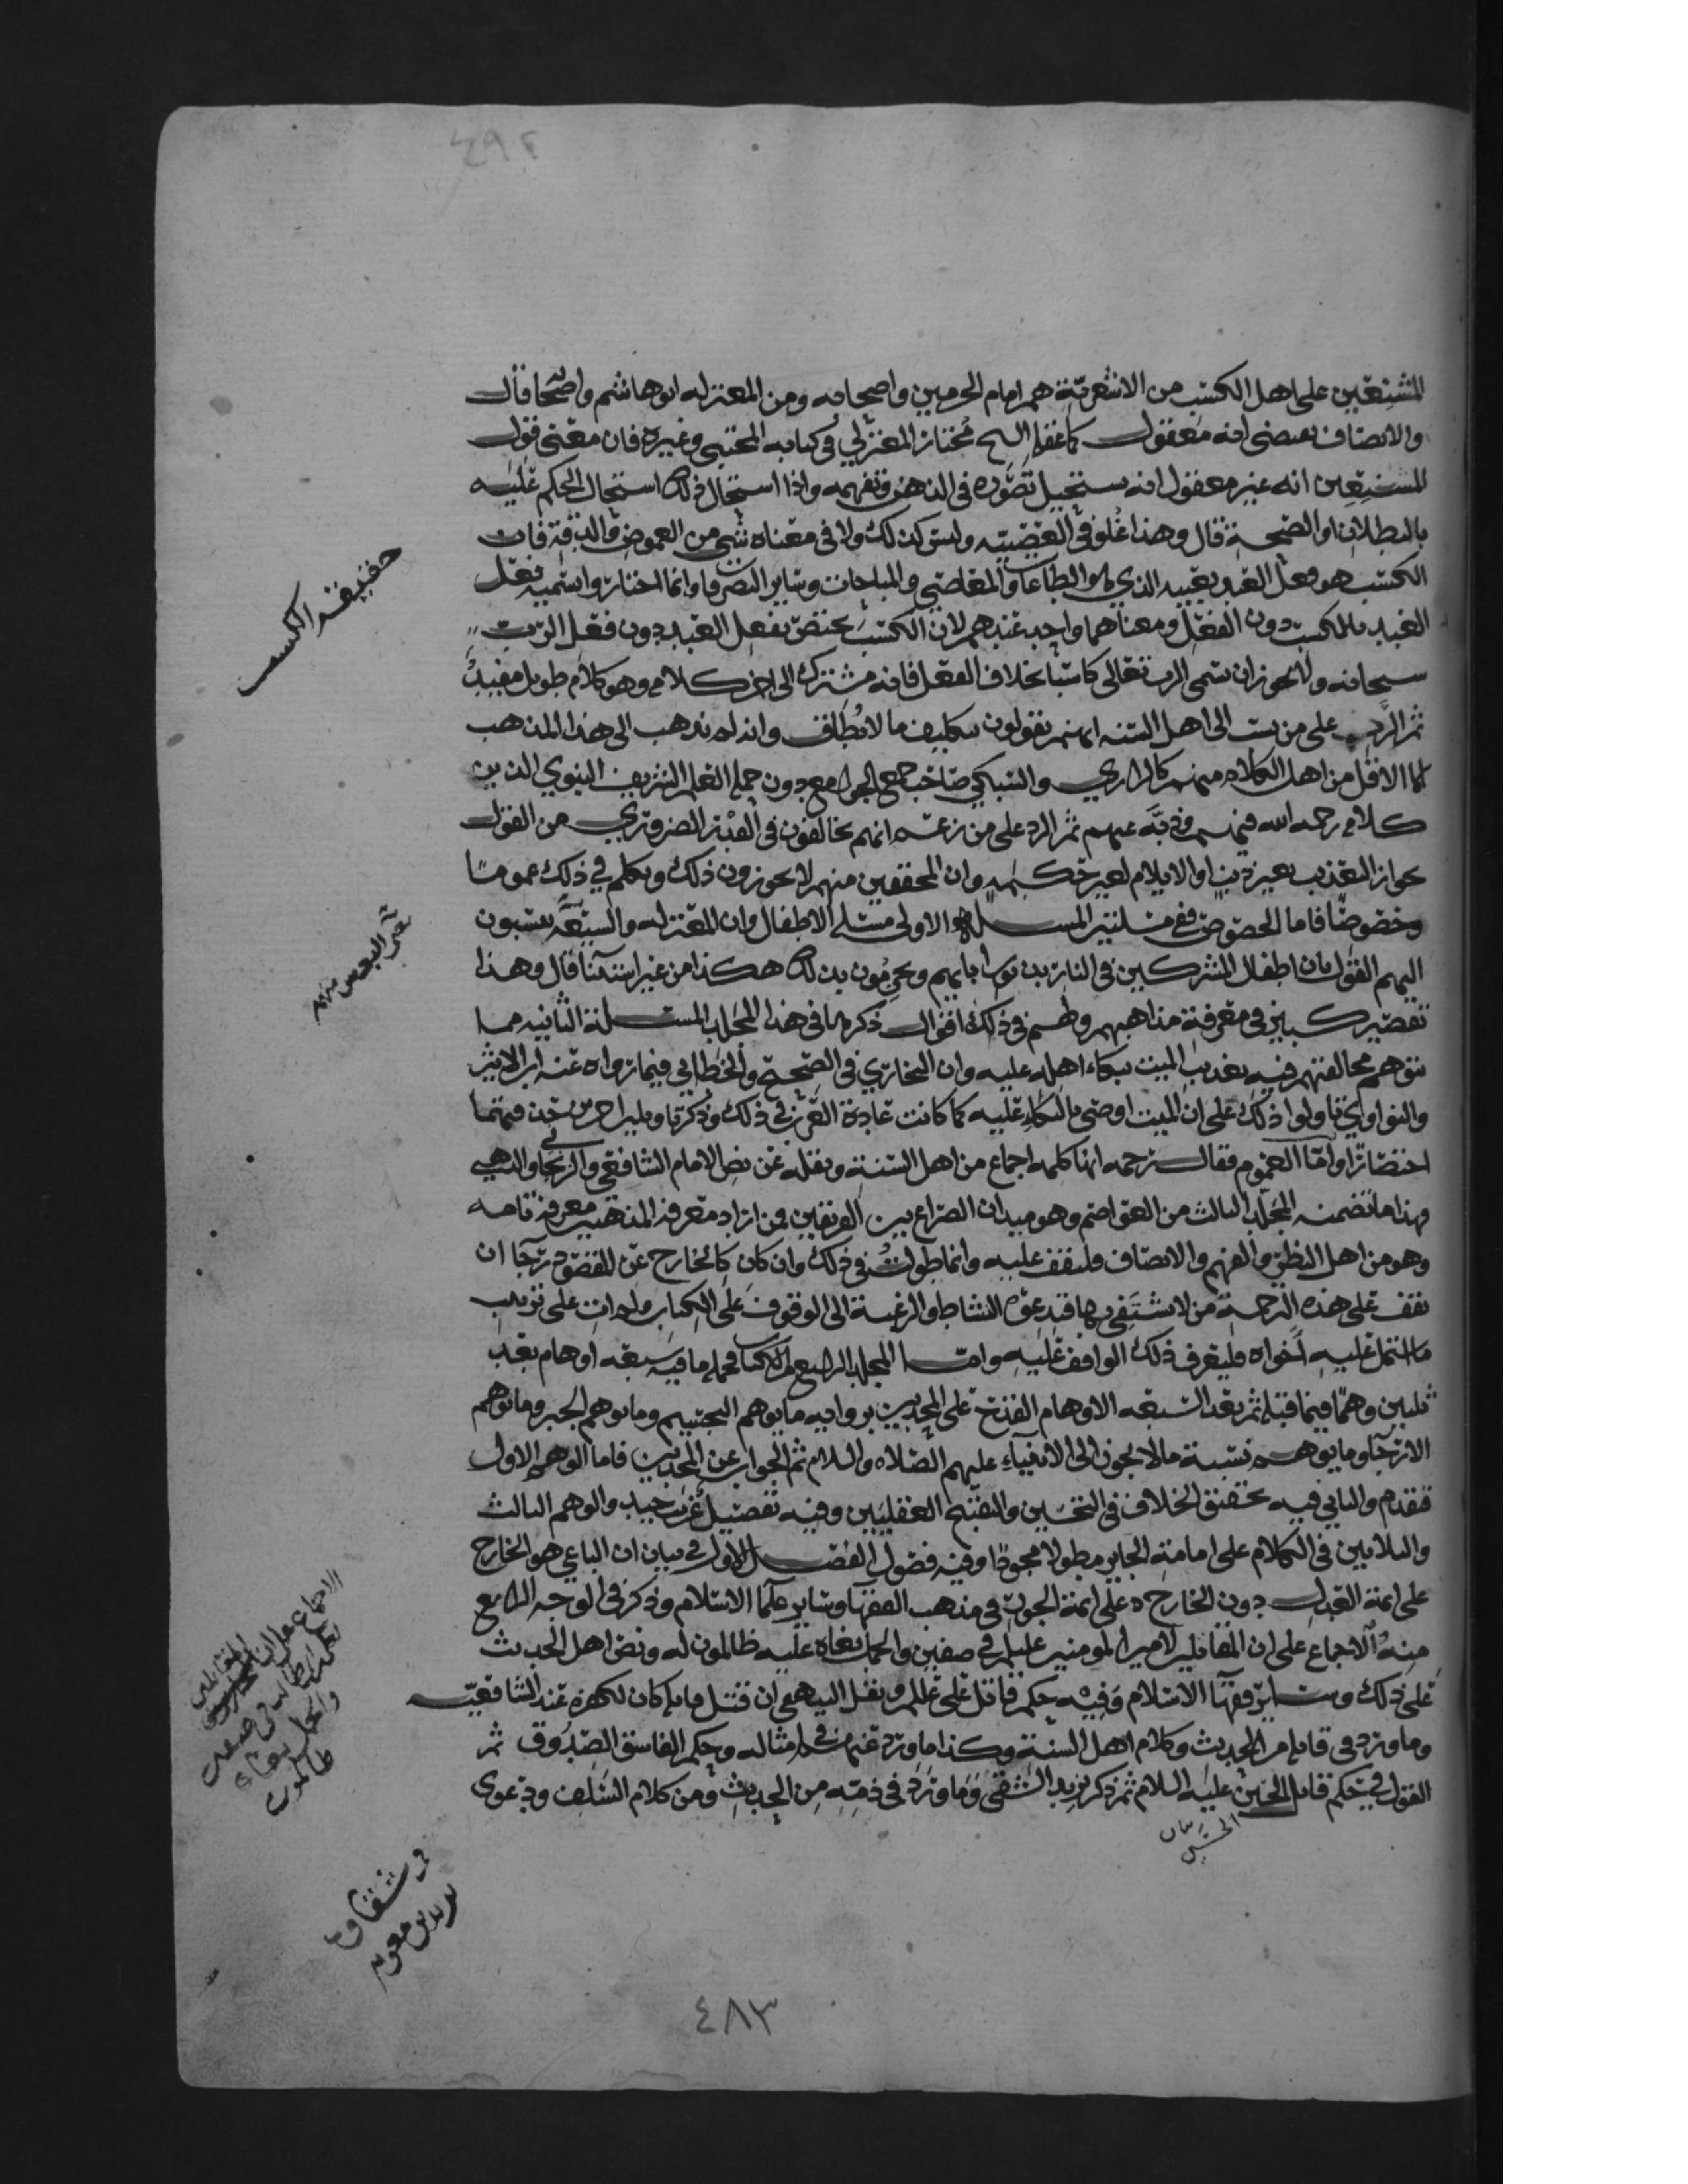 ٤٩٤
المشنعين على اهل الكسب من الاشعرية هم امام الحرمين واصحابه ومن المعتزلة ابو هاشم واصحابه قال
والانصاف يقتضي انه معقول كما عقله الشيخ مختار المعتزلي في كتابه المجتبى وغيره فان معنى قول
المشنعين انه غير معقول انه يستحيل تصوره في الذهن وتفهمه واذا استحال ذلك استحال الحكم عليه
بالبطلان او الصحة قال وهذا غلو في العصبية وليس كذلك ولا في معناه شي من الغموض والدقة فان
الكسب هو فعل العبد بعينه الذي هو الطاعات والمعاصي والمباحات وساير التصرفات وانما اختاروا تسمية فعل
العبد بالكسب دون الفعل ومعناهما واحد عندهم لان الكسب يختص بفعل العبد دون فعل الرب
سبحانه ولا يجوز ان يسمى الرب تعالى كاسبا بخلاف الفعل فانه مشترك الى اخر كلامه وهو كلام طويل مفيد
ثم الرد على من نسب الى اهل السنة انهم يقولون بتكليف ما لا يطاق وانه لم يذهب الى هذا المذهب
الا الاقل من اهل الكلام منهم كالرازي والسبكي صاحب جمع الجوامع دون حملة العلم الشريف النبوي الذين
كلامه رحمه الله فيهم وذبه عنهم ثم الرد على من زعم انهم يخالفون في القدر الضروري من القول
بجواز التعذيب بغير ذنب او الايلام لغير حكمة وان المحققين منهم لا يجوزون ذلك وتكلم في ذلك عموما
وخصوصا فاما الخصوص ففي مسئلتين المسئلة الاولى مسئلة الاطفال وان المعتزلة والشيعة ينسبون
اليهم القول بان اطفال المشركين في النار بذنوب ابايهم ويجزمون بذلك هكذا من غير استثنا قال وهذا
تقصير كبير في معرفة مذاهبهم ولهم في ذلك اقوال ذكرها في هذا المجلد المسئلة الثانية مما
يتوهم مخالفتهم فيه تعذيب الميت ببكاء اهله عليه وان البخاري في الصحيح والخطابي فيما رواه عنه ابن الاثير
والنواوي تاولوا ذلك على ان الميت اوصى بالبكاء عليه كما كانت عادة العرب في ذلك وذكر تاويلين اخرين
اختصارا واما العموم فقال رحمه انها كلمة اجماع من اهل السنة ونقله عن نص الامام الشافعي والذهبي
وهذا ما تضمنه المجلد الثالث من العواصم وهو ميدان الصراع بين الفريقين فمن اراد معرفة المذهبين معرفة تامه
وهو من اهل النظر والفهم والانصاف فليقف عليه وانما طولت في ذلك وان كان كالخارج عن المقصود رجا ان
يقف على هذه الترجمة من لا يشتفي بها فتدعوه النشاط والرغبة الى الوقوف على الكتاب ولم ات على ترتيب
ما اشتمل عليه فليعرف ذلك الواقف عليه واما المجلد الرابع من الكتاب فجملة ما فيه سبعة اوهام بعد
ثلثين وهما فيما قبله ثم بعد السبعة الاوهام القدح على المحدثين برواية ما يوهم التجسيم وما يوهم الجبر وما يوهم
الارجا وما يوهم نسبة ما لا يجوز الى الانبياء عليهم الصلاة والسلام ثم الجواب عن المحدثين فاما الوهم الاول
فتقدم والثاني فيه تحقيق الخلاف في التحسين والتقبيح العقليين وفيه تفصيل غريب جيد والوهم الثالث
والثلاثين في الكلام على امامة الجاير مطولا مجودا وفيه فصول الفصل الاول في بيان ان الباغي هو الخارج
على ايمة العدل دون الخارج على ايمة الجور في مذهب الفقها وساير علما الاسلام وذكر في الوجه الرابع
منه الاجماع على ان المقاتلين لامير المومنين علي في صفين والجمل بغاة عليه ظالمون له ونص اهل الحديث
على ذلك وساير فقها الاسلام وفيه حكم قاتل علي ونقل البيهقي ان قتل قاتله كان لكفره عند الشافعية
وما ورد في قاتله من الحديث وكلام اهل السنة وكذا ما ورد عنهم في امثاله وحكم الفاسق الصدوق ثم
القول في حكم قاتل الحسين عليه السلام ثم ذكر يزيد الشقي وما ورد في ذمه من الحديث ومن كلام السلف ودعوى
الحسين
حقيقة الكسب
الاجماع على ان المقاتلين
في صفين
والجمل بغاة
ظالمون
في شقاوة
يزيد بن معوية
٤٨٣